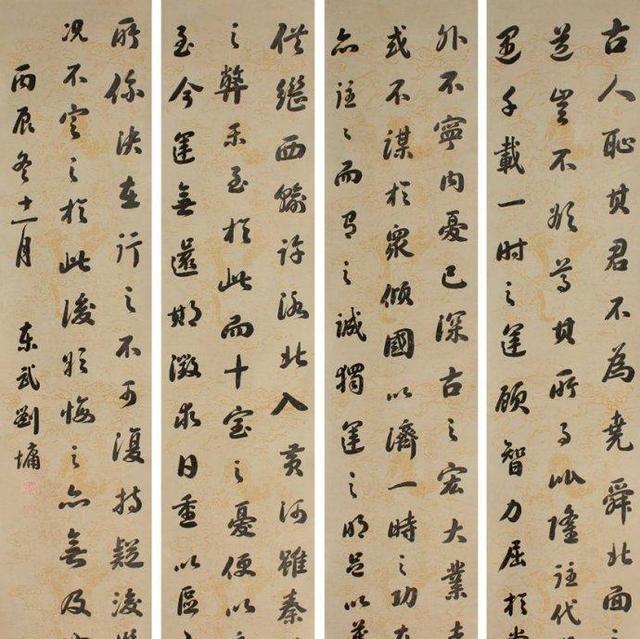 古人恥其君不為堯舜北面之
道豈不願尊其所事比隆往代
遇千載一時之運顧智力屈於
外不寧內憂已深古之宏大業
或不謀於眾傾國以濟一時之功
亦往往而有之誠獨運之明足以
供繼西輸許洛北入黃河雖秦
之弊未至於此而十室之憂便以
至今運無還期徵求日重以區
所係決在行之不可復持疑後
況不定之於此後欲悔之亦無及
丙辰冬十一月
東武劉墉